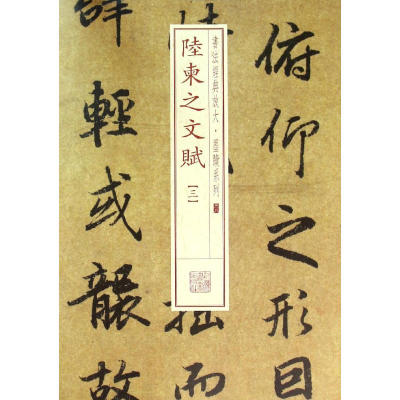 俯仰之形因
書法經典放大·墨跡系列
陸柬之文賦
【三】
拙而
辭輕或襲故